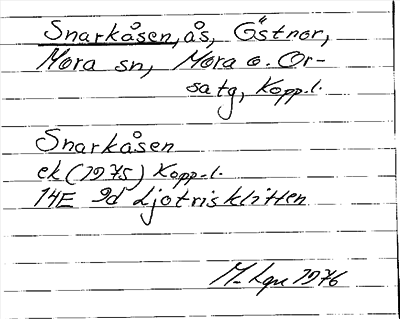 Snarkåsen, ås, Östnor,
Mora sn, Mora o. Or-
satg, Kopp.l.
Snarkåsen
ek (1975) Kopp.l.
14E 9d Ljotrisklitten
1976